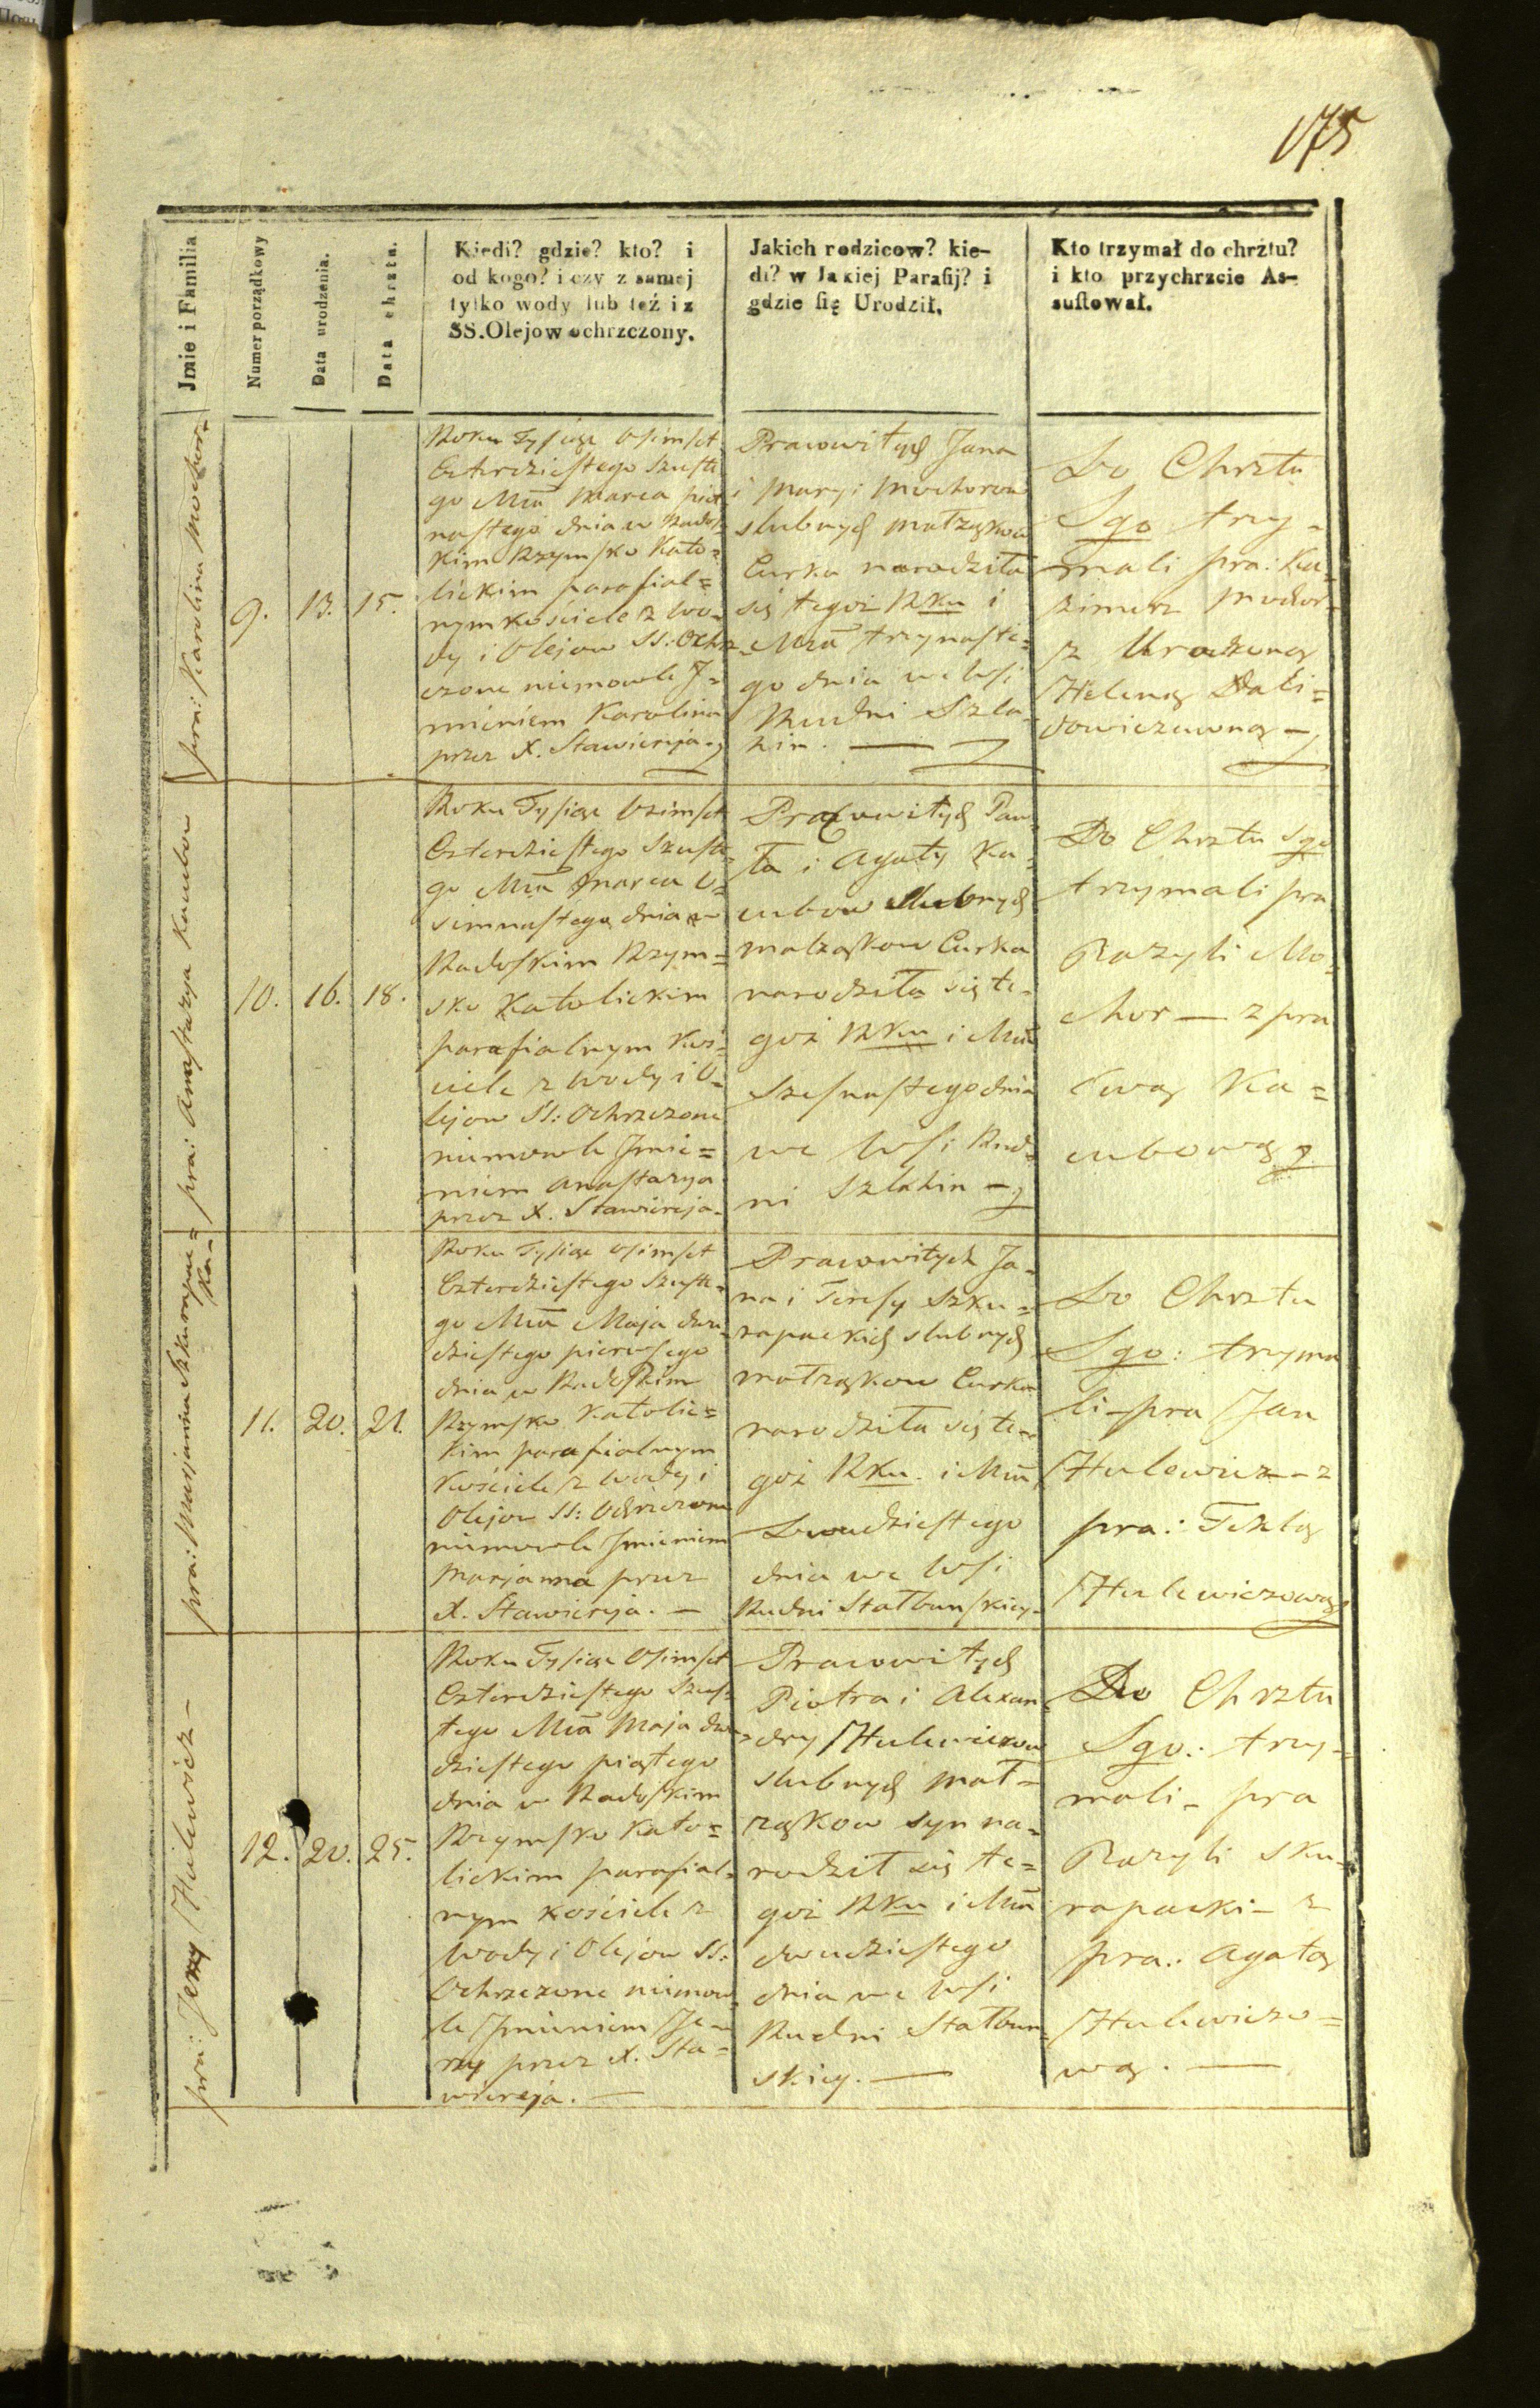 175
Jmie i Familia
Numer porządkowy
Data urodzenia.
Data chrzta.
Kiedi? gdzie? kto? i
od kogo? i czy z samej
tylko wody lub też i z
SS. Olejow ochrzczony.
Jakich rodzicow? kie-
di? w Jakiej Parafij? i
gdzie się Urodził.
Kto trzymał do chrztu?
i kto przychrzcie As-
sustował.
pra: Karolina Mochor-
9.
13.
15.
Roku Tysiąc Osimset
Czterdziestego Szuste
go Mca Marca piet
nastego dnia w Rados
kim Rzymsko Kato=
lickim parafial=
nym kościele z wo-
dy i Olejow SS: Ochrz
czone niemowle J=
mieniem Karolina
przez X. Stawiereja
Prawowitych Jana
i Maryi Mochorow
slubnych małząkow
Curka narodziła
się tegoż Rku i
Mca trzynaste=
go dnia we Wsi
Rudni Szla-
hin.
Do Chrztu
Sgo trzy-
mali pra: Ka-
zimerz Mochor-
z Urodzoną
Heleną Dali=
dowiczuwną
pra: Anastazya Kacubow
10.
16.
18.
Roku Tysiąc Osimset
Czterdziestego Szuste-
go Mca Marca O=
simnastego dnia w
Radoskim Rzym=
sko Katolickim
parafialnym Koś-
ciele z Wody i O-
lejow SS: Ochrzczone
niemowle Jmie=
niem Anastazya
przez X. Stawiereja-
Prawowitych Paw-
ła i Agaty Ka-
cubow slubnych
małząkow Curka
narodziła się te-
goż Rku i Mca
Szesnastego dnia
we Wsi Rud-
ni Szlahin
Do Chrztu Sgo
trzymali pra
Bazyli Mo-
chor — z pra
Ewą Ka=
cubową
pra: Marjanna Szkurapac=
ka-
11.
20.
21.
Roku Tysiąc Osimset
Czterdziestego Szuste-
go Mca Maja dwu-
dziestego pierwsego
dnia w Radoskim
Rzymsko Katolic=
kim parafialnym
Kościele z Wody i
Olejow SS: Ochrzczone
niemowle Jmieniem
Marjanna przez
X. Stawiereja. —
Prawowitych Ja-
na i Teresy Szku=
rapackich slubnych
małrząkow Curka
narodziła się te-
goż Rku. i Mca
Dwudziestego
dnia we Wsi
Rudni Stałbunskiey-
Do Chrztu
Sgo: trzyma
li- pra Jan
Hulewicz - z
pra: Teklą
Hulewiczową
pra: Jerzy Hulewicz -
12.
20.
25.
Roku Tysiąc Osimset
Czterdziestego Szus=
tego Mca Maja dwu-
dziestego piątego
dnia w Radoskim
Rzymsko Kato=
lickim parafial-
nym kościele z
Wody i Olejow SS:
Ochrzczone niemow
le Jmieniem Je-
rzy przez X. Sta=
wiereja. —
Prawowitych
Piotra i Alexan
dry Hulewiczow
slubnych mał-
rząkow syn na-
rodził się te=
goż Rku i Mca
dwudziestego
dnia we Wsi
Rudni Stałbun-
skiey. —
Do Chrztu
Sgo.: trzy-
mali- pra
Bazyli Sku-
rapacki- z
pra: Agatą
Hulewiczo=
wą. —